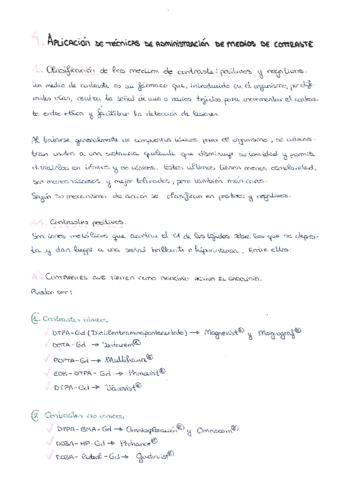 4. APLICACIÓN DE TÉCNICAS DE ADMINISTRACIÓN DE MEDIOS DE CONTRASTE
1. Clasificación de los medios de contraste: positivos y negativos.
Un medio de contraste es un fármaco que, introducido en el organismo, por dife-
rentes vías, realza la señal de uno o varios tejidos para incrementar el contras-
te entre ellos y facilitar la detección de lesiones.
Al tratarse generalmente de compuestos tóxicos para el organismo, se adminis-
tran unidos a una sustancia quelante que disminuye su toxicidad y permite
dividirlos en iónicos y no iónicos. Estos últimos tienen menos osmolaridad,
son menos viscosos y mejor tolerados, pero también más caros.
Según su mecanismo de acción se clasifican en positivos y negativos.
1.1. Contrastes positivos.
Son iones metálicos que acortan el T1 de los tejidos sobre los que se deposi-
ta y dan lugar a una señal brillante o hiperintensa. Entre ellos:
A) CONTRASTES QUE TIENEN COMO PRINCIPIO ACTIVO EL GADOLINIO.
Pueden ser:
1. Contrastes iónicos.
✓ DTPA-Gd → Magnevist® y Magnograf®
✓ DOTA-Gd → Dotarem®
✓ BOPTA-Gd → Multihance®
✓ EOB-DTPA-Gd → Primovist®
✓ DTPA-Gd → Vasovist®
2. Contrastes no iónicos.
✓ DTPA-BMA-Gd → y Omniscan®
✓ DO3A-HP-Gd → Prohance®
✓ DO3A-Butrol-Gd → Gadovist®